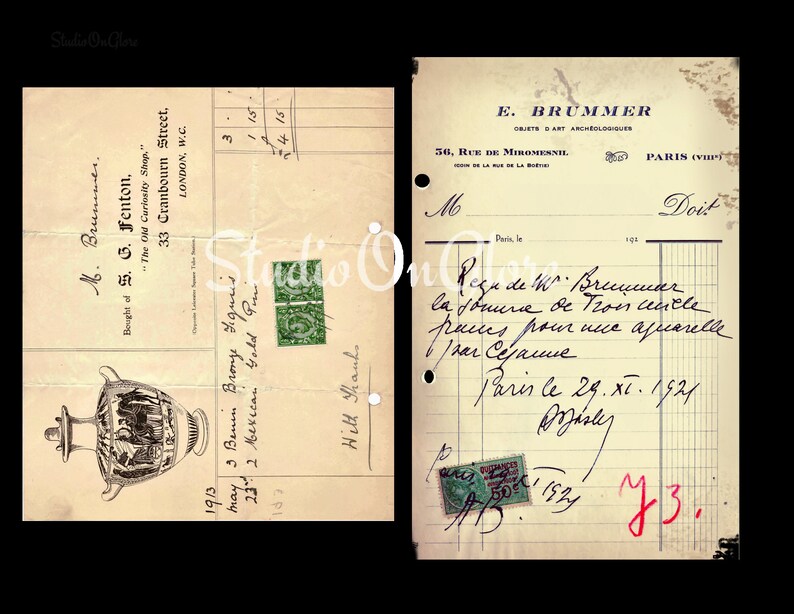 StudioOnGlore
M. Brummer.
Bought of S. G. Fenton,
"The Old Curiosity Shop,"
33 Cranbourn Street,
LONDON, W.C.
Opposite Leicester Square Tube Station.
1913
may 3 Benin Bronze Figures 3
23rd 2 Mexican Gold Pins 1 15
£ 4 15
With Thanks
E. BRUMMER
OBJETS D'ART ARCHÉOLOGIQUES
36, RUE DE MIROMESNIL PARIS (VIIIe)
(COIN DE LA RUE DE LA BOËTIE)
M Doit
Paris, le 192
Reçu de Mr Brummer
la somme de Trois mille
francs pour une aquarelle
par Cezanne
Paris le 29. XI. 1921
QUITTANCES
50c
Paris XI 1921
AB.
73.
StudioOnGlore